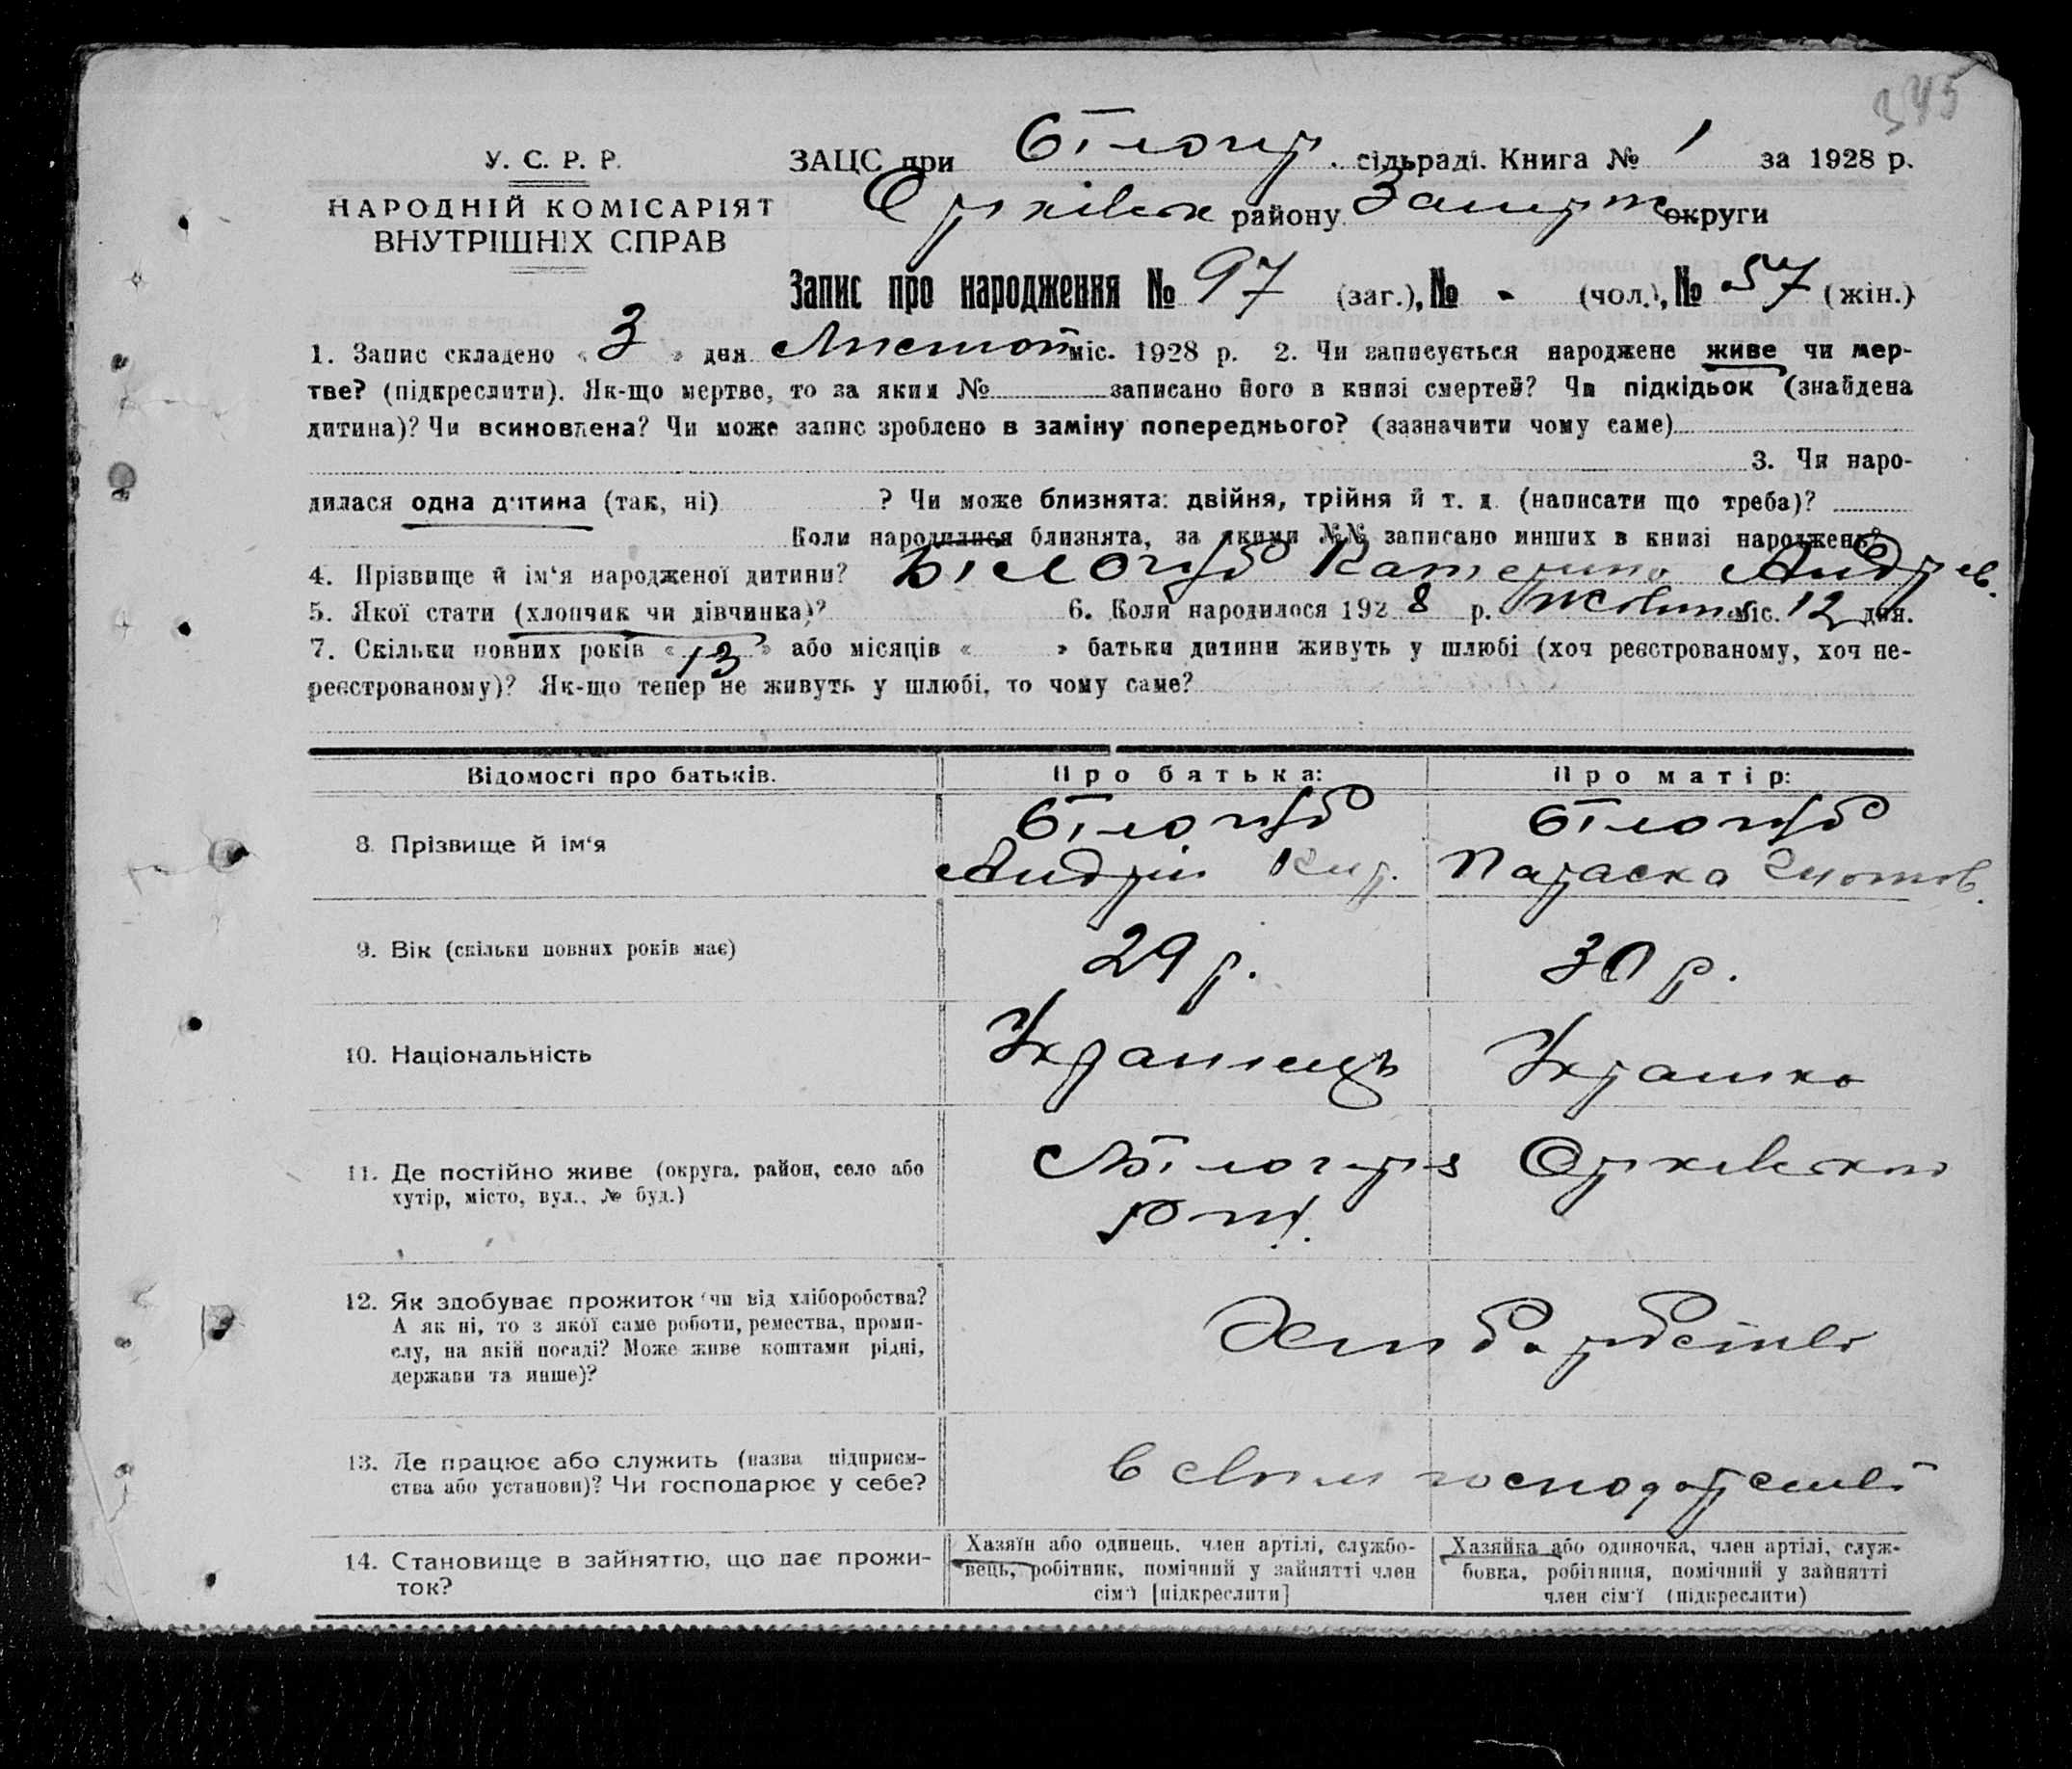 345
У. С. Р. Р. ЗАЦС при Білогір. сільраді. Книга № 1 за 1928 р.
НАРОДНІЙ КОМІСАРІЯТ Оріхівськ району Запоріж округи
ВНУТРІШНІХ СПРАВ
Запис про народження № 97 (заг.), № - (чол.), № 57 (жін.)
1. Запис складено « 3 » дня Листоп міс. 1928 р. 2. Чи записується народжене живе чи мер-
тве? (підкреслити). Як-що мертве, то за яким № записано його в книзі смертей? Чи підкідьок (знайдена
дитина)? Чи всиновлена? Чи може запис зроблено в заміну попереднього? (зазначити чому саме)
3. Чи наро-
дилася одна дитина (так, ні) ? Чи може близнята: двійня, трійня й т. д. (написати що треба)?
Коли народилися близнята, за якими №№ записано инших в книзі народжень?
4. Прізвище й ім‘я народженої дитини? Білогуб Катерина Андрієв.
5. Якої стати (хлопчик чи дівчинка)? 6. Коли народилося 1928 р. Жовтня міс. 12 дня.
7. Скільки повних років « 13 » або місяців « » батьки дитини живуть у шлюбі (хоч реєстрованому, хоч не-
реєстрованому)? Як-що тепер не живуть у шлюбі, то чому саме?
Відомості про батьків. Про батька: Про матір:
8. Прізвище й ім‘я Білогуб Білогуб
Андрій Кир. Параска
9. Вік (скільки повних років має) 29 р. 30 р.
10. Національність Українець Українка
11. Де постійно живе (округа, район, село або хутір, місто, вул., № буд.) с Білогіря Оріхівського
рай.
12. Як здобуває прожиток (чи від хліборобства?
А як ні, то з якої саме роботи, ремества, проми-
слу, на якій посаді? Може живе коштами рідні,
держави та инше)? Хліборобство
13. Де працює або служить (назва підприєм-
ства або установи)? Чи господарює у себе? в своїм господарстві
14. Становище в зайняттю, що дає прожи-
ток?
Хазяїн або одинець, член артілі, службо-
вець, робітник, помічний у зайнятті член
сім‘ї [підкреслити]
Хазяйка або одиночка, член артілі, служ-
бовка, робітниця, помічний у зайнятті
член сім‘ї (підкреслити)